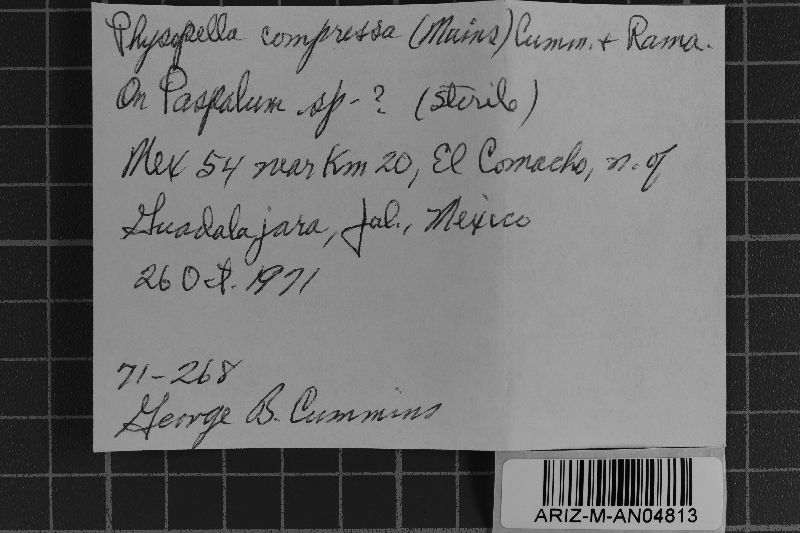 Physopella compressa (Mains) Cumm. + Rama.
On Paspalum sp-? (sterile)
Mex 54 near Km 20, El Comacho, n. of
Guadalajara, Jal., Mexico
26 Oct. 1971
71-268
George B. Cummins
ARIZ-M-AN04813